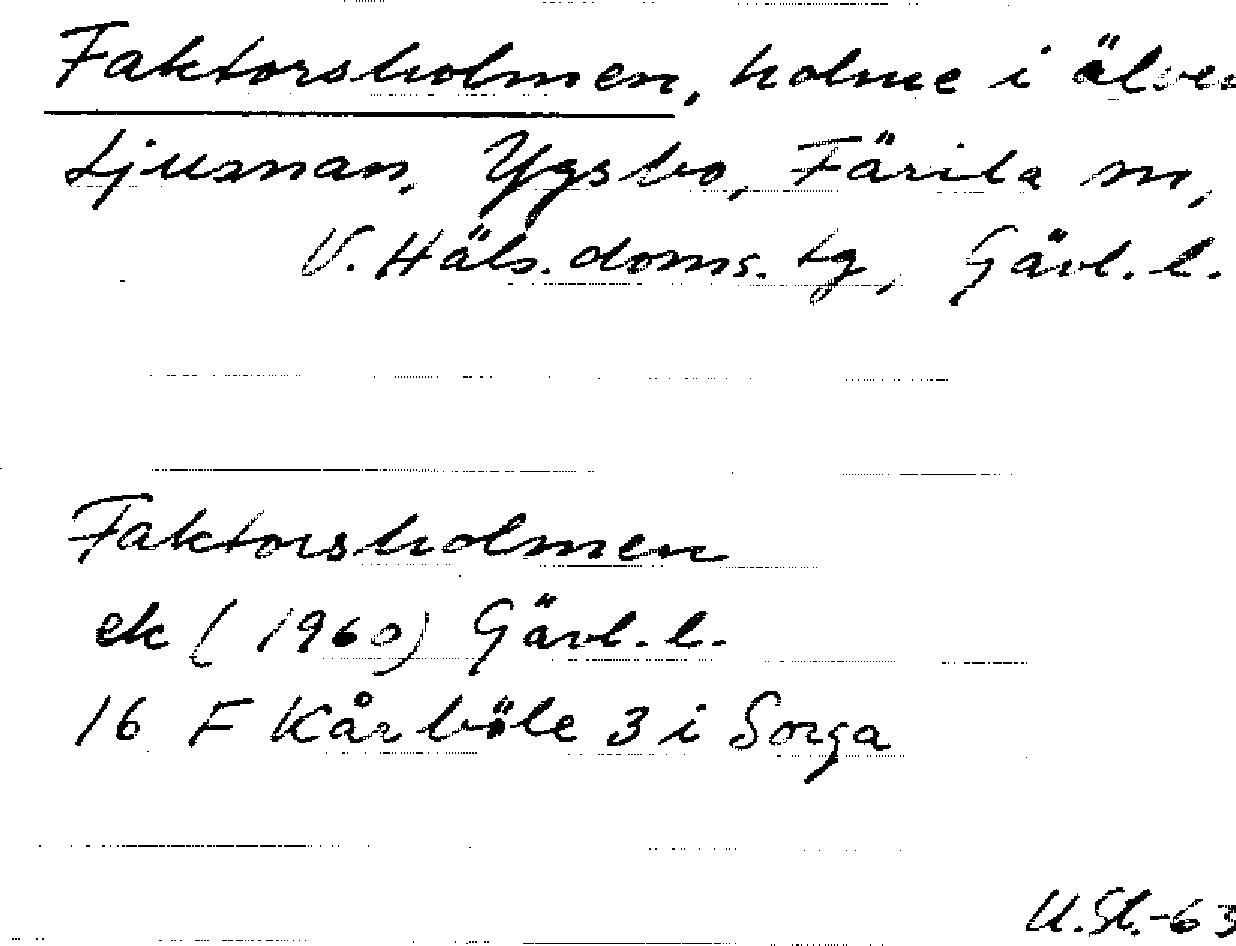 Faktorsholmen, holme i älven
Ljusnan, Ygsbo, Färila sn,
V. Häls. doms. tg, Gävl. l.
Faktorsholmen
ek (1960) Gävl. l.
16 F Kårböle 3 i Sorga
U.St.-63